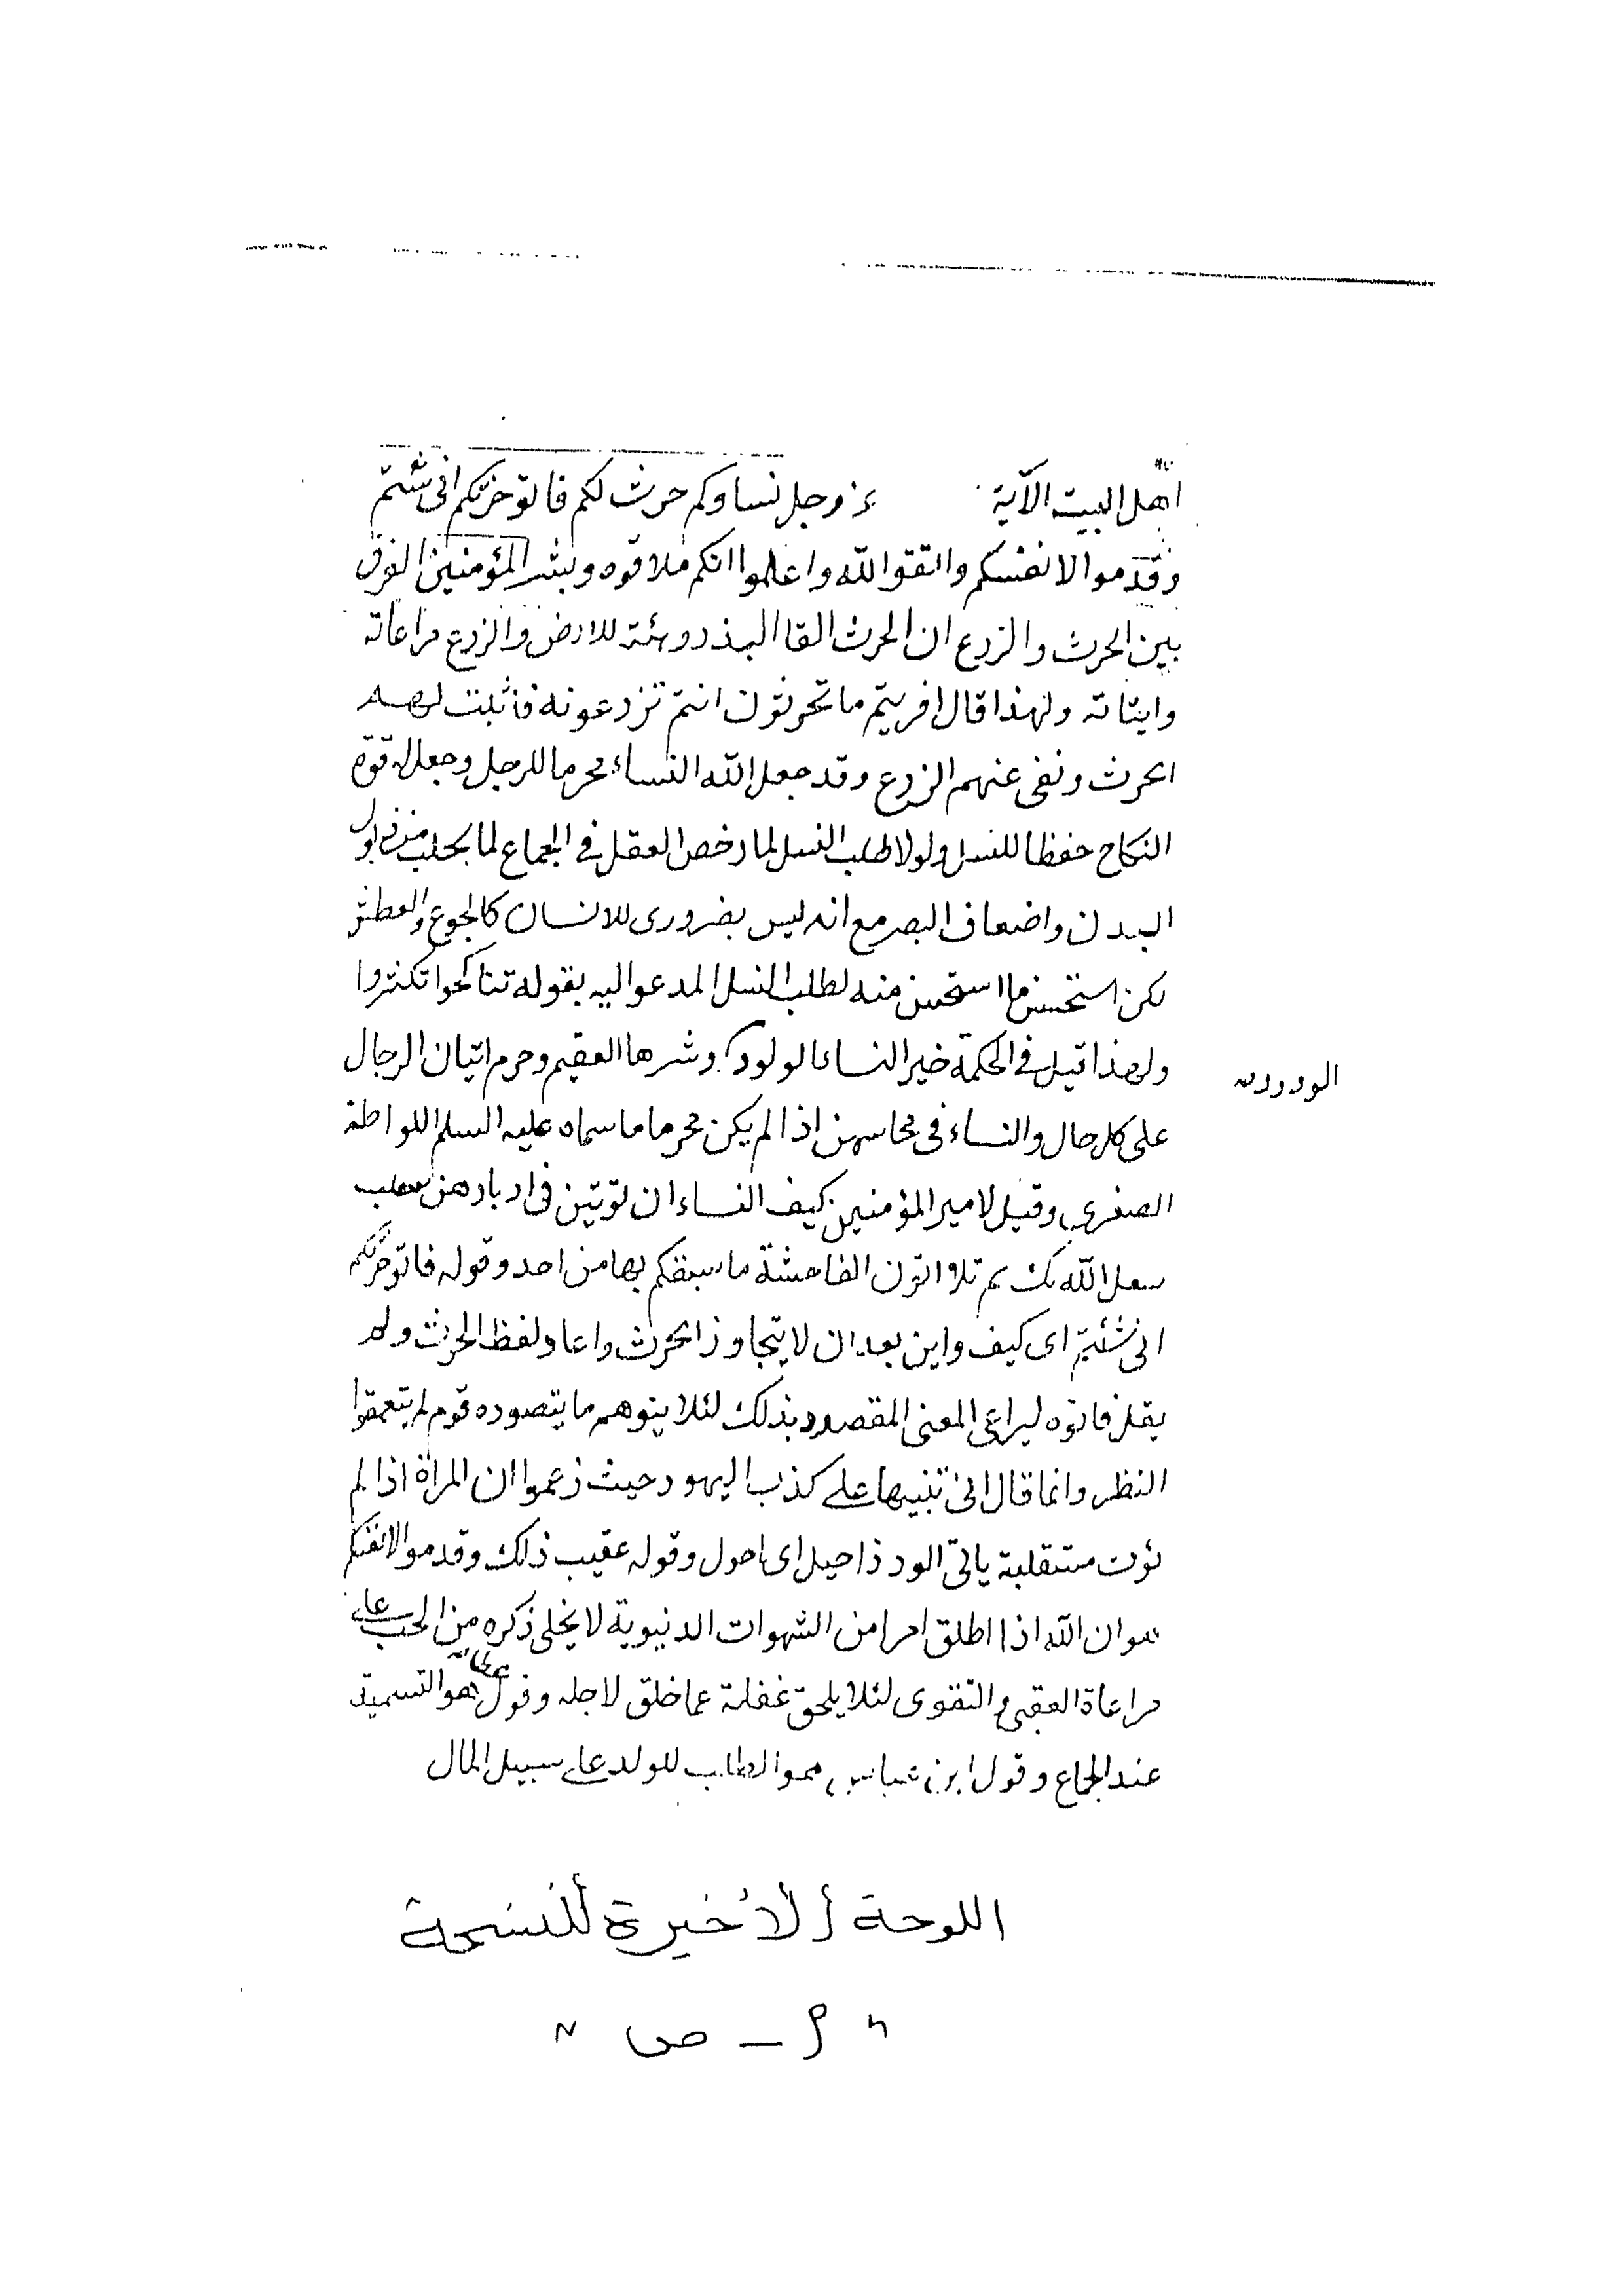 اهل البيت الآية عز وجل نساوكم حرث لكم فاتوا حرثكم انى شئتم
وقدموا لانفسكم واتقوا الله واعلموا انكم ملاقوه وبشر المؤمنين الفرق
بين الحرث والزرع ان الحرث القا البذر وتهيئة للارض والزرع مراعاته
وانباته ولهذا قال افريتم ما تحرثون انتم تزرعونه فاثبت لهم
الحرث ونفى عنهم الزرع وقد جعل الله النساء محرما للرجل وجعل له قوة
النكاح حفظا للنسل ولولا طلب النسل لما رخص العقل في الجماع لما يجلب من
البدن واضعاف البصر مع انه ليس بضرورى للانسان كالجوع والعطش
لكن استحسن ما استحسن منه لطلب النسل المدعو اليه بقوله تناكحوا تكثروا
ولهذا قيل في الحكمة خير النساء الولود وشرها العقيم وحرم اتيان الرجال
الودود
على كل حال والنساء في محاسهن اذا لم يكن محرما ما سماه عليه السلم اللواطة
الصغرى وقيل لامير المؤمنين كيف النساء ان توتين فى ادبارهن
الله بك ثم تلا اتون الفاحشة ما سبقكم بها من احد وقوله فاتوا حرثكم
انى شئتم اى كيف واين بعد ان لا يتجاوز الحرث واعاد لفظ الحرث ولم
يقل فاتوه ليراعى المعنى المقصود بذلك لئلا يتوهم ما يتصوره قوم لم يتعمقوا
النظر وانما قال انى تنبيها على كذب اليهود حيث زعموا ان المراة اذا لم
توت مستقلبة ياتى الولد ذا حيل اى احول وقوله عقيب ذلك وقدموا لانفسكم
هو ان الله اذا اطلق امرا من الشهوات الدنيوية لا يخلى ذكره من الحث على
مراعاة العقبى والتقوى لئلا يلحق غفلة عما خلق لاجله وقول عطا هو التسمية
عند الجماع وقول ابن عباس هو الطلب للولد على سبيل المال
اللوحة الأخيرة للنسخة
" م - ص "